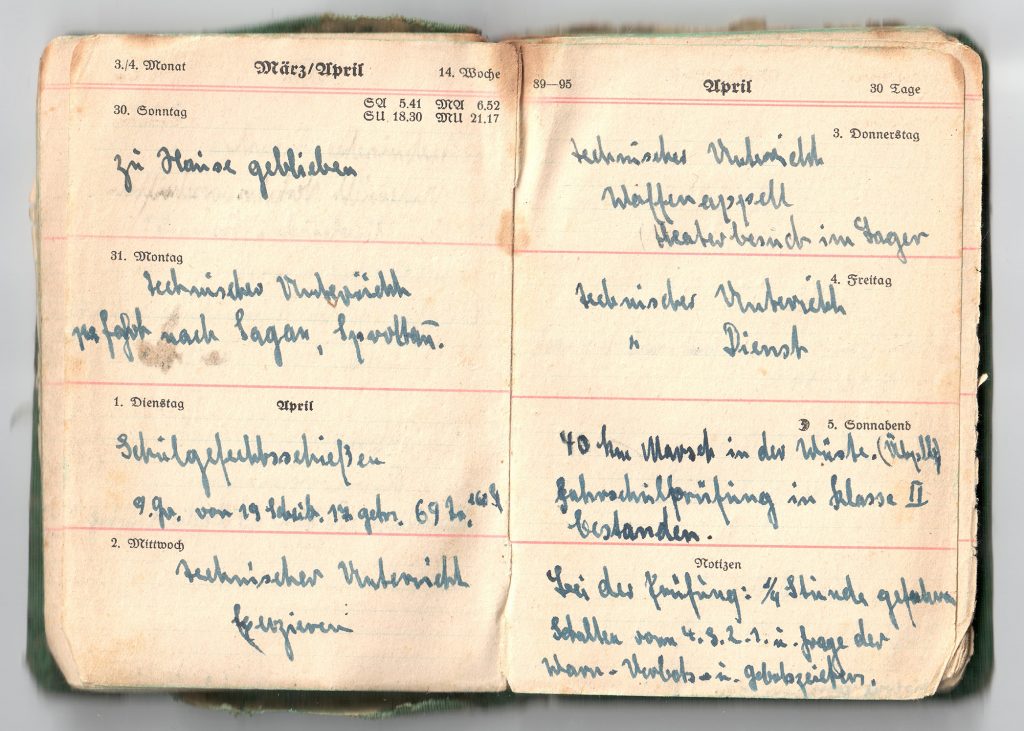 3./4. Monat März/April 14. Woche
30. Sonntag
SA 5.41 MA 6.52
SU 18.30 MU 21.17
zu Hause geblieben
31. Montag
technischer Unterricht
nach Sagan, Sprottau.
1. Dienstag April
Schulgefechtsschießen
9. Gr. von 19 Scheib. 17 getr. 69
2. Mittwoch
technischer Unterricht
Exerzieren
89—95 April 30 Tage
3. Donnerstag
technischer Unterricht
Waffenappell
Theaterbesuch im Lager
4. Freitag
technischer Unterricht
" Dienst
5. Sonnabend
40 km Marsch in der Wüste.
Fahrschulprüfung in Klasse II
bestanden.
Notizen
Bei der Prüfung: 1/4 Stunde gefahren
Schalten vom 4.3.2.1. u. Frage der
Warn- Verbots- u. Gebotszeichen.